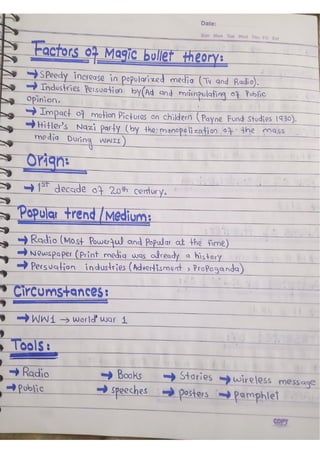 Date:
Sun Mon Tue Wed Thu Fri Sat
Factors of Magic bullet theory:
→ Speedy increase in popularized media (Tv and Radio).
→ Industries Persuation by (Ad and miinpulating of Public
opinion.
→ Impact of motion Pictures on childern (Payne Fund Studies 1930).
→ Hitler's Nazi party (by the menopolization of the mass
media During WWII)
Orign:
→ 1ST decade of 20th century.
Popular trend/Medium:
→ Radio (Most Powerful and Popular at the time)
→ Newspaper (Print media was already a history
→ Persuation industries (Advertisment, Propaganda)
Circumstances:
→ WW1 → World War 1
Tools:
→ Radio → Books → Stories → wireless message
→ Public → speeches → posters → pamphlet
COPY